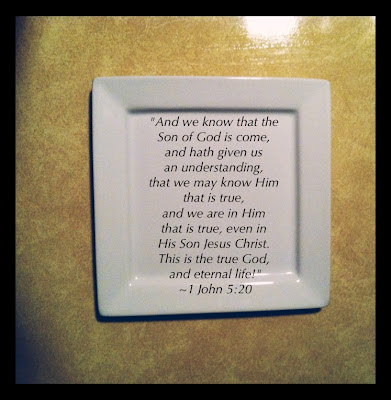 "And we know that the
Son of God is come,
and hath given us
an understanding,
that we may know Him
that is true,
and we are in Him
that is true, even in
His Son Jesus Christ.
This is the true God,
and eternal life!"
~1 John 5:20